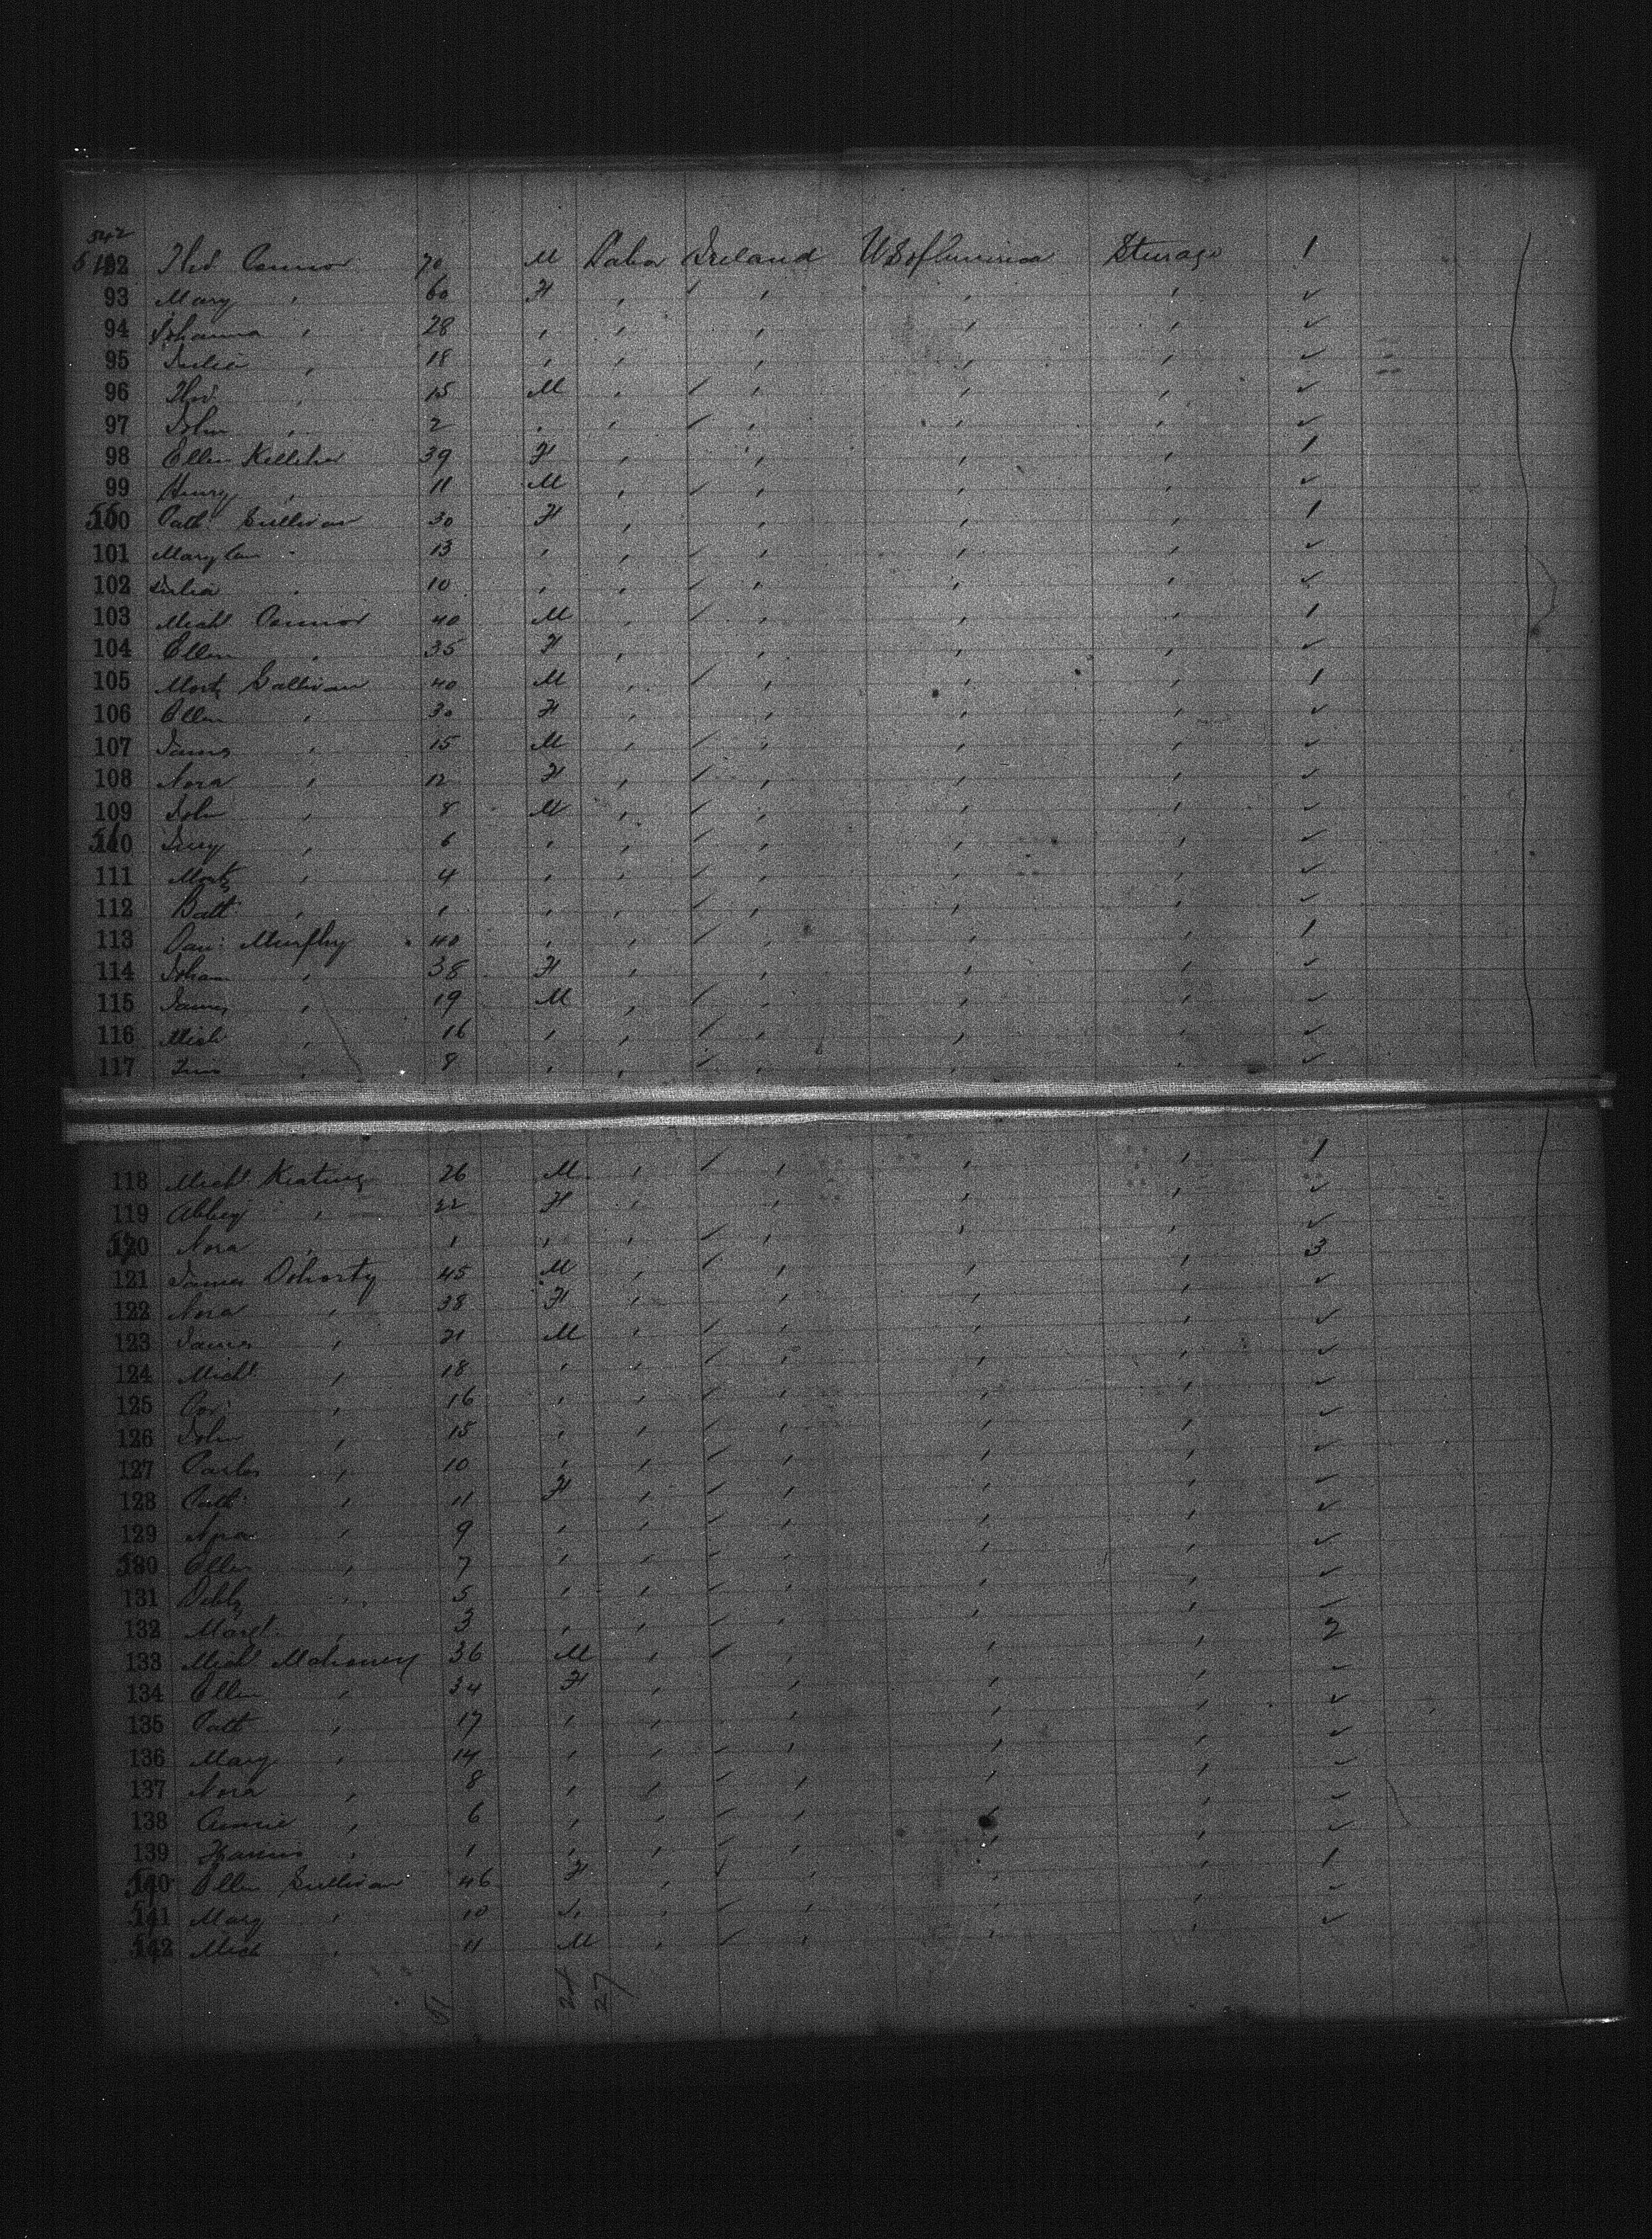 542
92 Thos Connor 70 M Labor Ireland US of America Steerage 1
93 Mary " 60 F " " " " ✓
94 Johanna " 28 " " " " " ✓
95 Julia " 18 " " " " " ✓
96 Thos " 15 M " " " " ✓
97 John " 2 " " " " " ✓
98 Ellen Kelliher 39 F " " " " 1
99 Henry " 11 M " " " " ✓
100 Cath: Sullivan 30 F " " " " 1
101 Mary " 13 " " " " " ✓
102 Julia " 10 " " " " " ✓
103 Michl Connor 40 M " " " " 1
104 Ellen " 35 F " " " " ✓
105 Morty Sullivan 40 M " " " " 1
106 Ellen " 30 F " " " " ✓
107 James " 15 M " " " " ✓
108 Nora " 12 F " " " " ✓
109 John " 8 M " " " " ✓
110 " 6 " " " " " ✓
111 Morty " 4 " " " " " ✓
112 Batt " 1 " " " " " ✓
113 Dan: Murphy 40 " " " " " 1
114 Johan " 38 F " " " " ✓
115 James " 19 M " " " " ✓
116 Mich " 16 " " " " " ✓
117 Tim " 8 " " " " " ✓
118 Michl Keating 26 M " " " " 1
119 Abbey " 22 F " " " " ✓
120 Nora " 1 " " " " " ✓
121 James Doherty 45 M " " " " 3
122 Nora " 38 F " " " " ✓
123 James " 21 M " " " " ✓
124 Michl " 18 " " " " " ✓
125 " 16 " " " " " ✓
126 John " 15 " " " " " ✓
127 " 10 " " " " " ✓
128 Cath: " 11 F " " " " ✓
129 " 9 " " " " " ✓
130 Ellen " 7 " " " " " ✓
131 Debby " 5 " " " " " ✓
132 Margt " 3 " " " " " ✓
133 Michl Mahoney 36 M " " " " 2
134 Ellen " 34 F " " " " ✓
135 Cath " 17 " " " " " ✓
136 Mary " 14 " " " " " ✓
137 Nora " 8 " " " " " ✓
138 Annie " 6 " " " " " ✓
139 " 1 " " " " " ✓
140 Ellen Sullivan 46 F " " " " 1
141 Mary " 10 " " " " " ✓
142 Mich " 11 M " " " " ✓
51 24 27